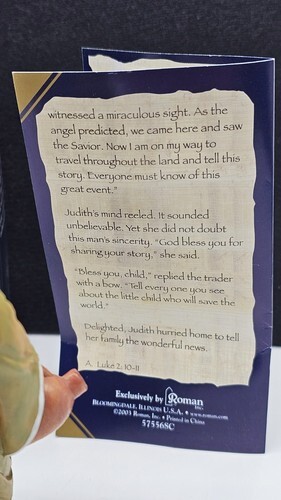 witnessed a miraculous sight. As the
angel predicted, we came here and saw
the Savior. Now I am on my way to
travel throughout the land and tell this
story. Everyone must know of this
great event."
Judith's mind reeled. It sounded
unbelievable. Yet she did not doubt
this man's sincerity. "God bless you for
sharing your story," she said.
"Bless you, child," replied the trader
with a bow. "Tell every one you see
about the little child who will save the
world."
Delighted, Judith hurried home to tell
her family the wonderful news.
A. Luke 2: 10-11
Exclusively by Roman Inc.
BLOOMINGDALE, ILLINOIS U.S.A. • www.roman.com
©2003 Roman, Inc. • Printed in China
575568C